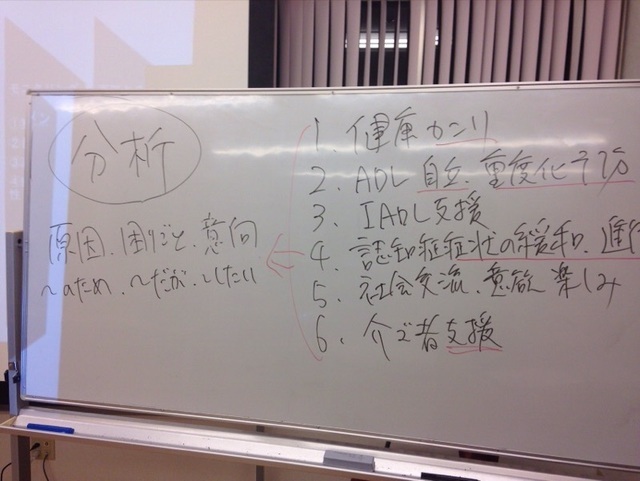 分析
原因、困りごと、意向
〜のため、〜だが、〜したい
1. 健康カンリ
2. ADL 自立、重度化予防
3. IADL支援
4. 認知症症状の緩和、進行
5. 社会交流、意欲 楽しみ
6. 介ゴ者支援